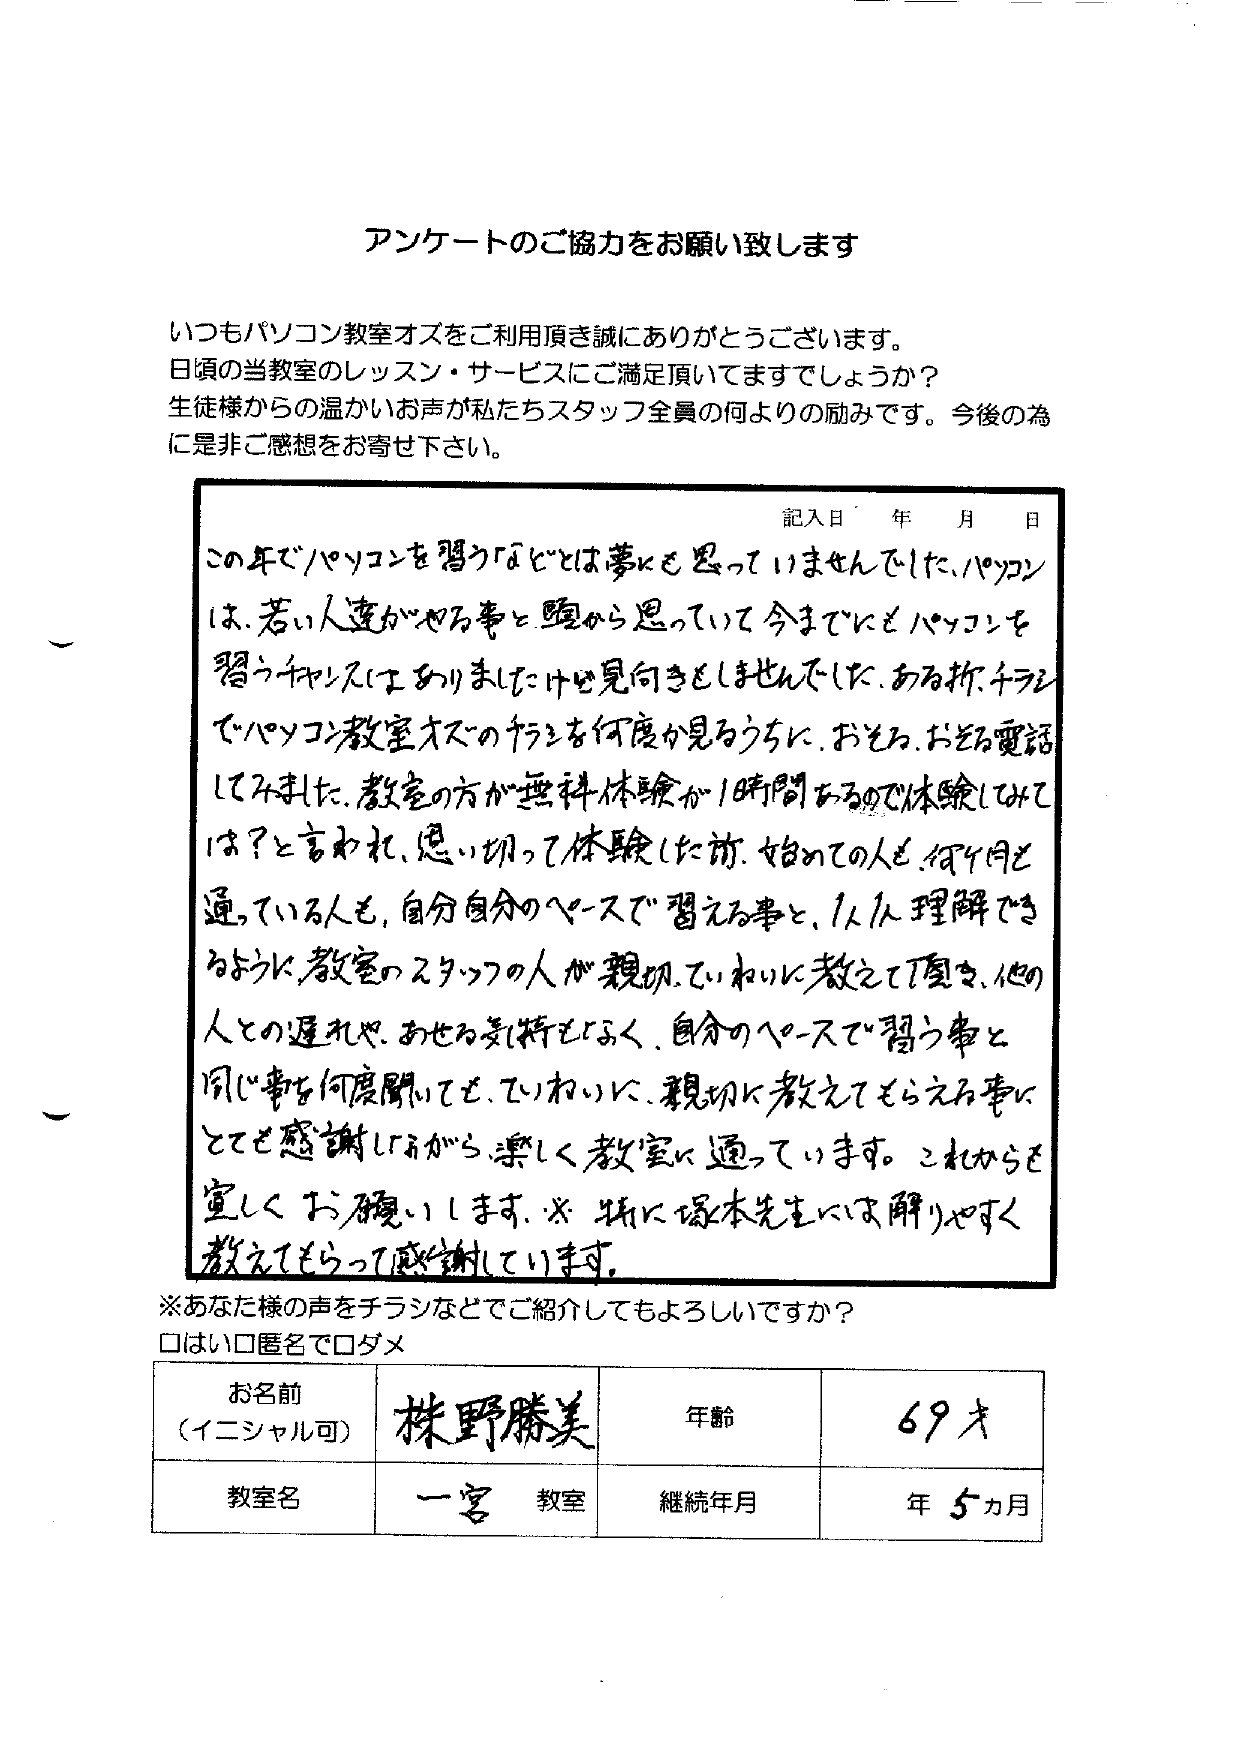 アンケートのご協力をお願い致します
いつもパソコン教室オズをご利用頂き誠にありがとうございます。
日頃の当教室のレッスン・サービスにご満足頂いてますでしょうか?
生徒様からの温かいお声が私たちスタッフ全員の何よりの励みです。今後の為
に是非ご感想をお寄せ下さい。
記入日 年 月 日
この年でパソコンを習うなどとは夢にも思っていませんでした、パソコン
は、若い人達がやる事と頭から思っていて今までにもパソコンを
習うチャンスはありましたけど見向きもしませんでした、ある折、チラシ
でパソコン教室オズのチラシを何度か見るうちに、おそる、おそる電話
してみました、教室の方が無料体験が1時間あるので体験してみて
は?と言われ、思い切って体験した所、始めての人も、何ケ月も
通っている人も、自分自分のペースで習える事と、1人1人理解でき
るように、教室のスタッフの人が親切、ていねいに教えて頂き、他の
人との遅れや、あせる気持もなく、自分のペースで習う事と
同じ事を何度聞いても、ていねいに、親切に教えてもらえる事に
とても感謝しながら、楽しく教室に通っています。これからも
宜しくお願いします、※特に塚本先生には解りやすく
教えてもらって感謝しています。
※あなた様の声をチラシなどでご紹介してもよろしいですか?
□はい□匿名で□ダメ
お名前 株野勝美 年齢 69才
(イニシャル可)
教室名 一宮 教室 継続年月 年 5ヵ月